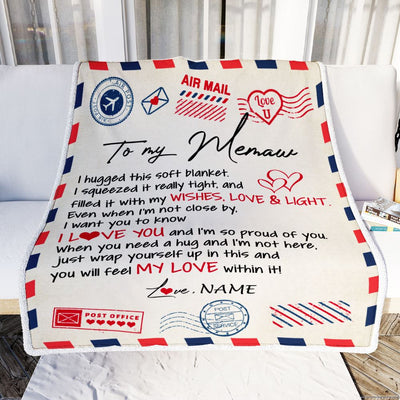 AIR MAIL
Love U
To my Memaw
I hugged this soft blanket.
I squeezed it really tight, and
filled it with my WISHES, LOVE & LIGHT.
Even when I'm not close by.
I want you to know
I LOVE YOU and I'm so proud of you.
When you need a hug and I'm not here,
just wrap yourself up in this and
you will feel MY LOVE within it!
Love, NAME
POST OFFICE